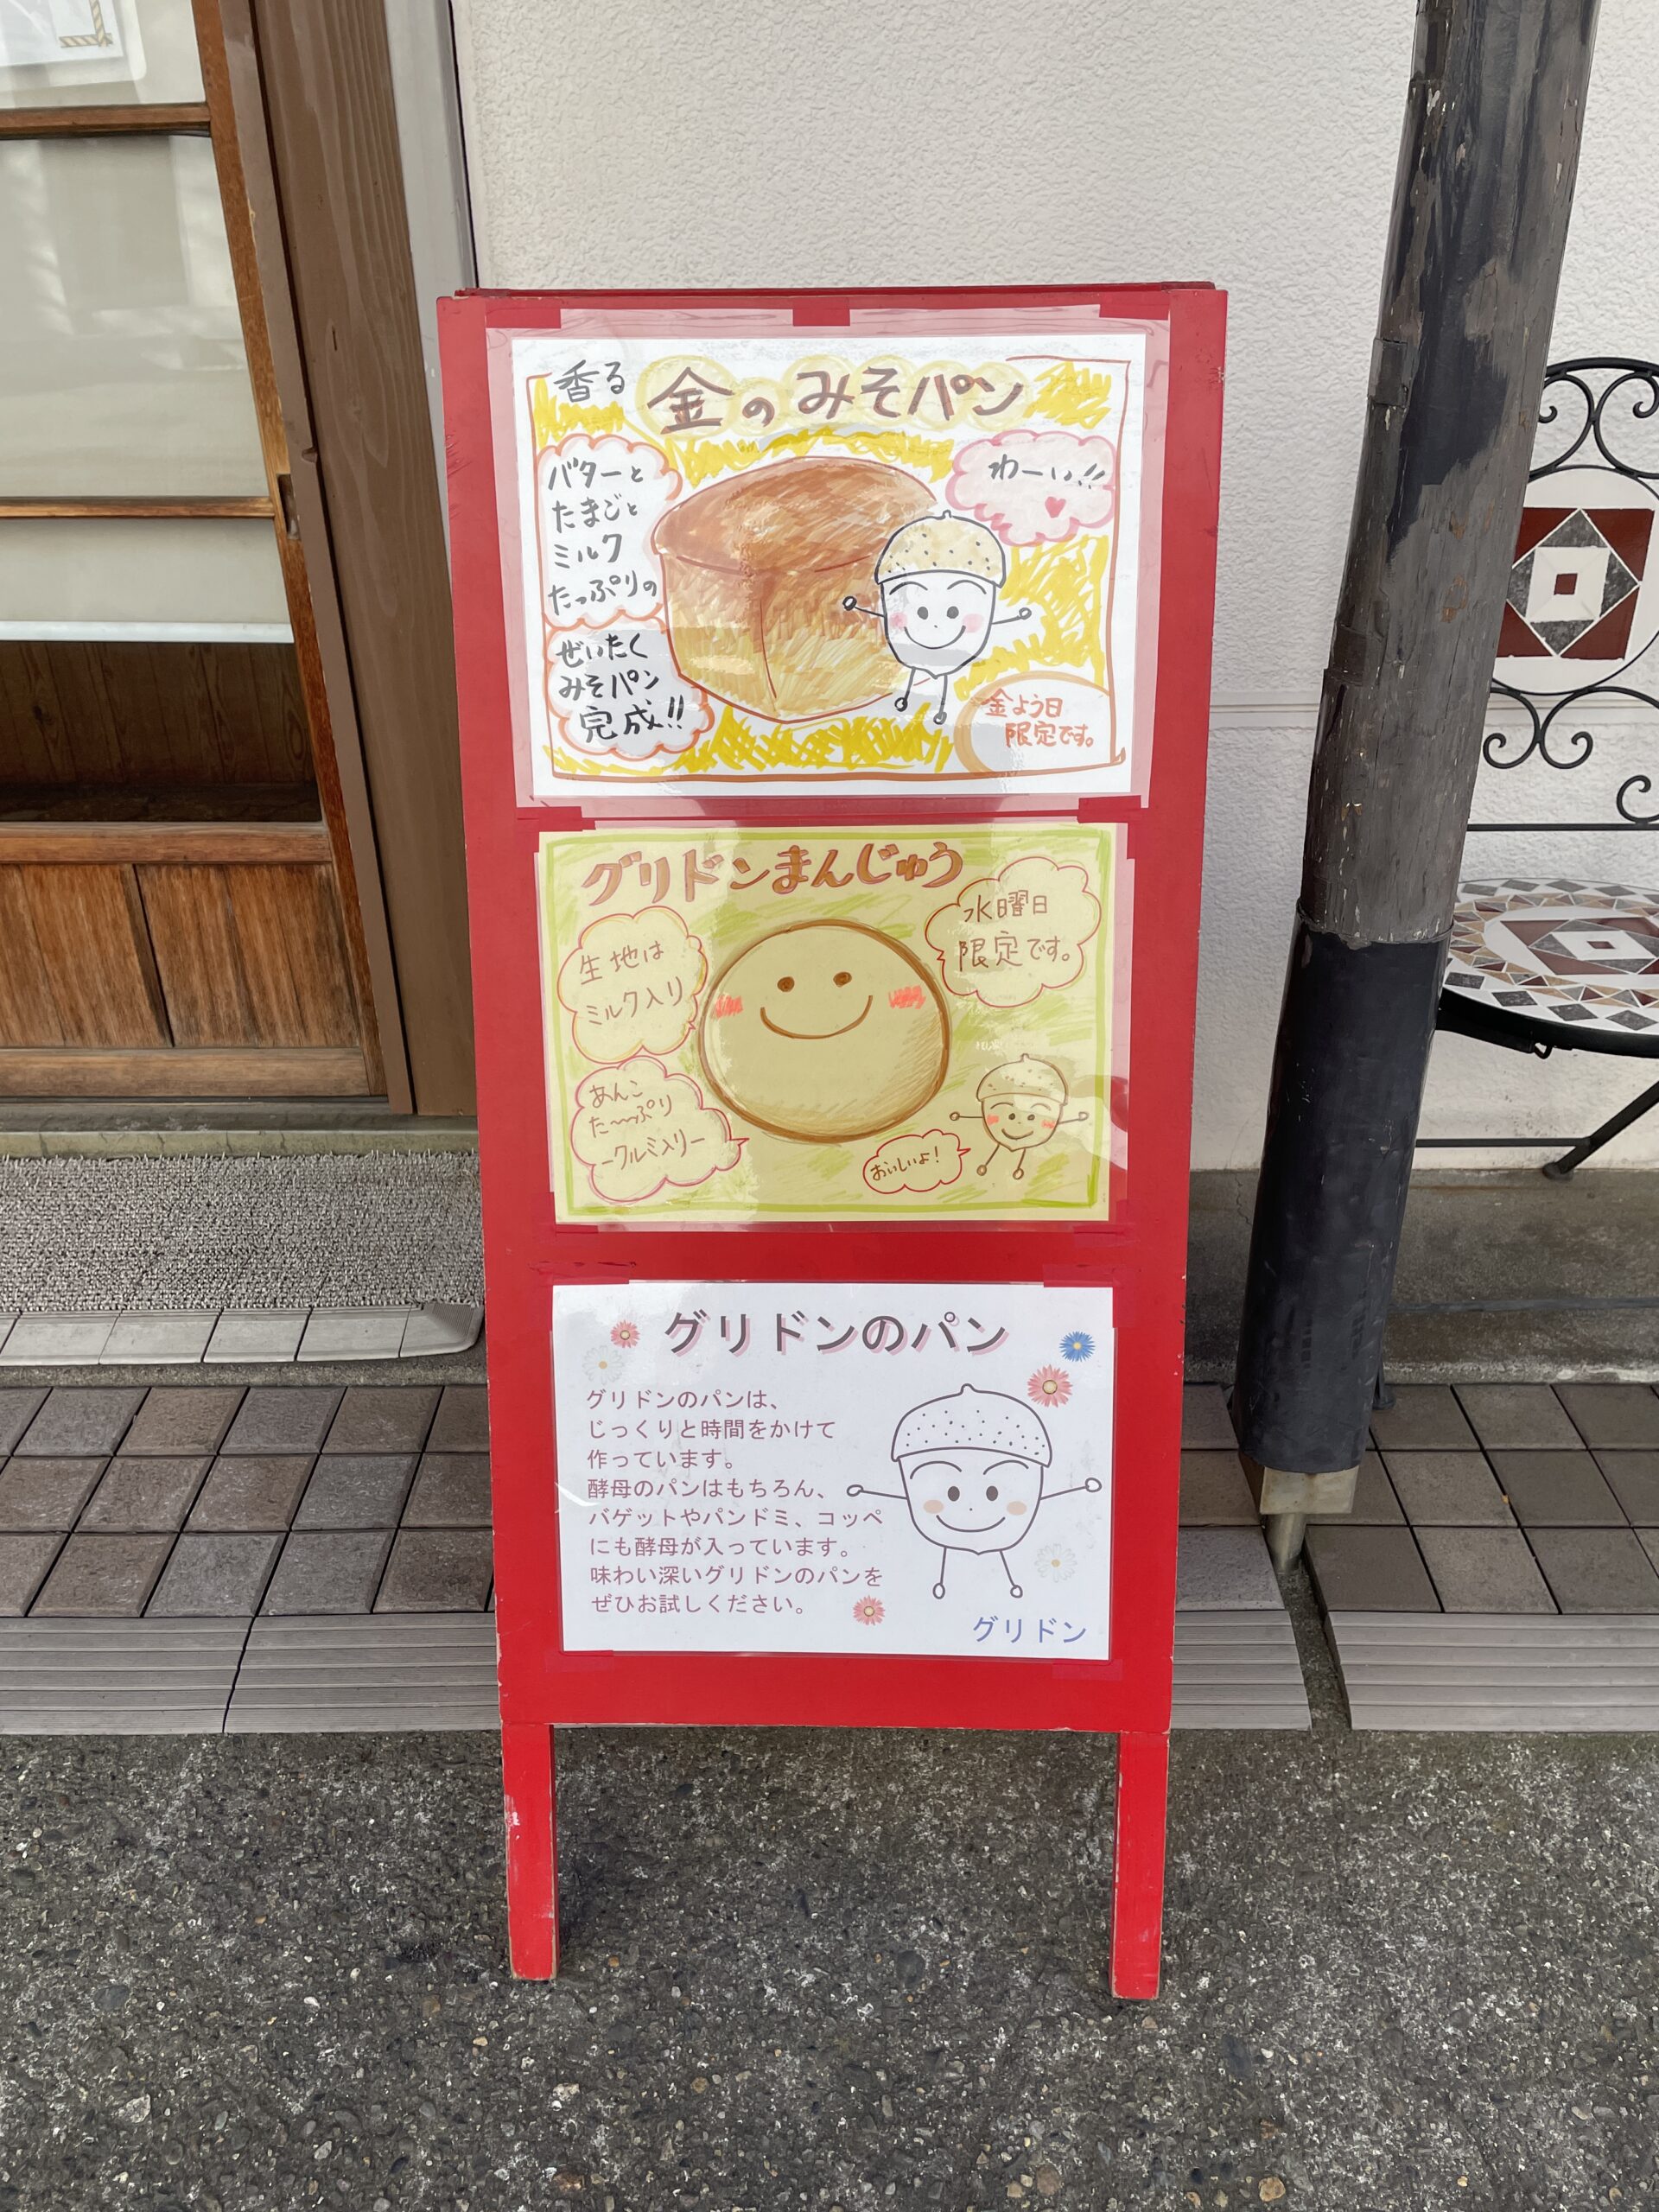 香る 金のみそパン
バターと
たまごと
ミルク
たっぷりの
ぜいたく
みそパン
完成!!
わーい!!
金よう日
限定です。
グリドンまんじゅう
水曜日
限定です。
生地は
ミルク入り
あんこ
た〜っぷり
ークルミ入りー
おいしいよ!
グリドンのパン
グリドンのパンは、
じっくりと時間をかけて
作っています。
酵母のパンはもちろん、
バゲットやパンドミ、コッペ
にも酵母が入っています。
味わい深いグリドンのパンを
ぜひお試しください。
グリドン